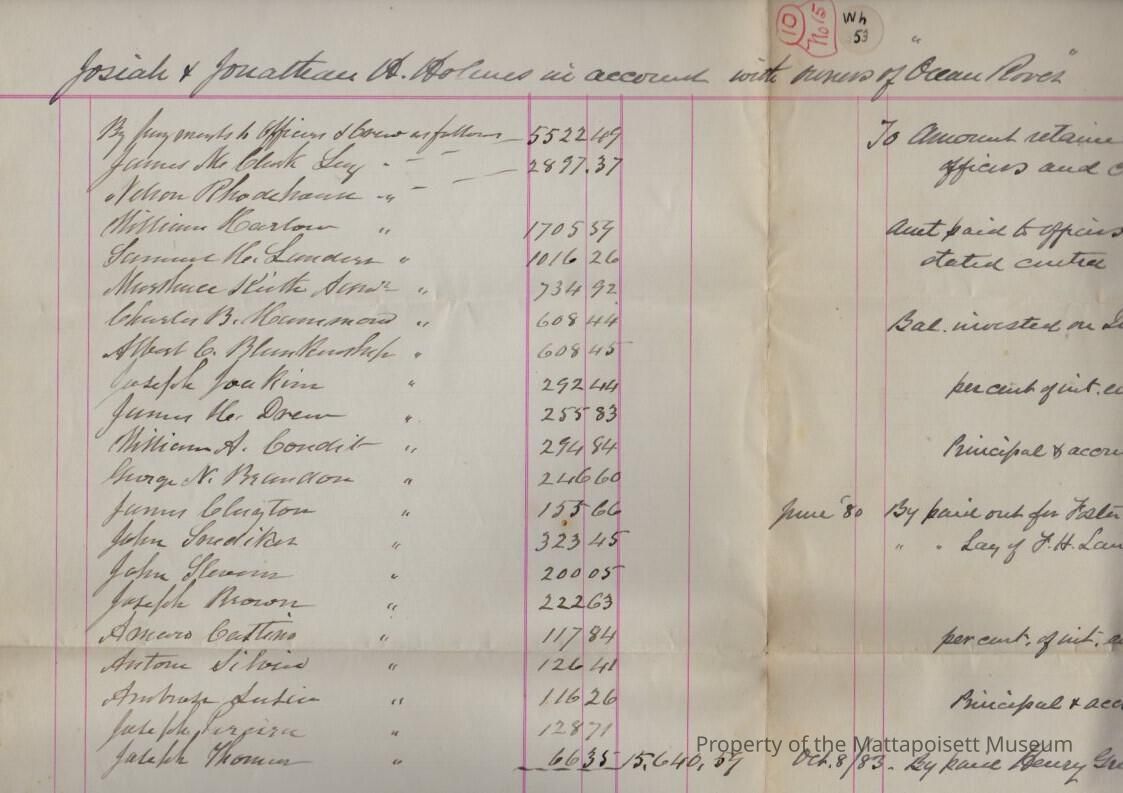 10
No 15
Wh
53
Josiah & Jonathan H. Holmes in account with owners of "Ocean Rover"
By payments to Officers & Crew as follows 5522 49
James M. Clark Lay " 2897.37
Nelson Rhodehouse "
William Harlow " 1705 59
Samuel H. Sanders " 1016 26
Keith " 734 92
Charles B. Hammond " 608 44
Albert C. Blankenship " 608 45
Joseph Joakim " 292 44
James H. Drew " 255 83
William A. Condit " 294 84
George N. Brandon " 246 60
James Clington " 155 66
John Srediker " 323 45
John Slevin " 200 05
Joseph Brown " 222 63
Amaro Castino " 117 84
Antone Silvia " 126 41
Ambroze " 116 26
Joseph " 128 71
Joseph Thomas " 66 35 15,640,59
To Amount retaine
officers and c
Amt paid to officers
stated
Bal. invested on
per cent of int.
Principal & accru
June '80 By paid out for Foster
" " Lay of F. H. Lan
per cent. of int. a
Principal & acc
Oct. 8/83. By paid Henry Gr
Property of the Mattapoisett Museum